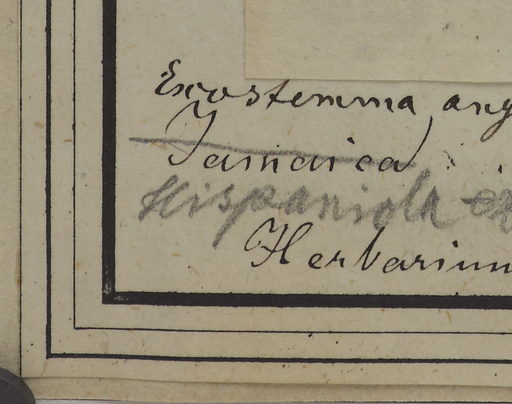 Exostemma ang
Jamaica
Hispaniola
Herbarium